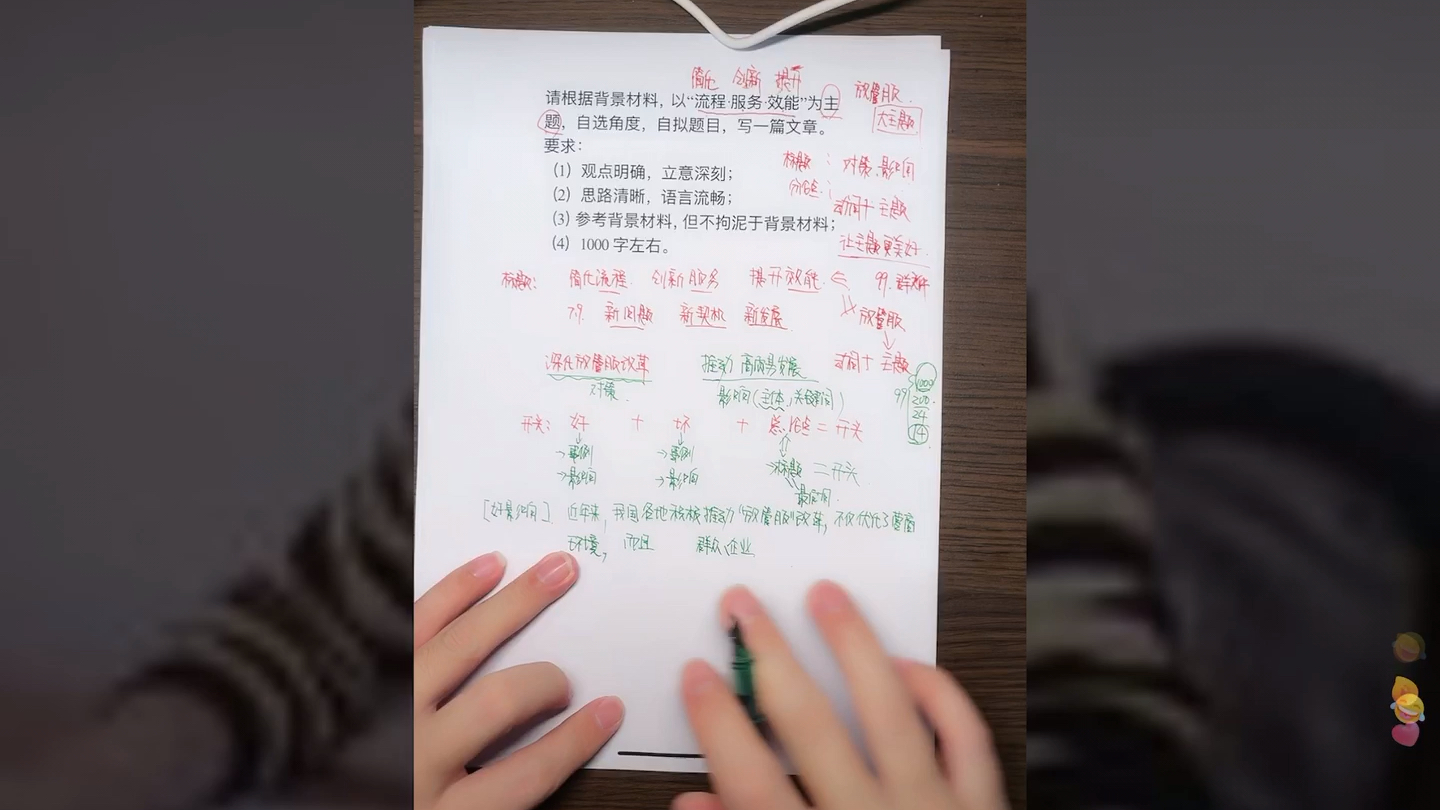 简化 创新 提升
请根据背景材料，以“流程·服务·效能”为主 放管服
题，自选角度，自拟题目，写一篇文章。 大主题
要求：
（1）观点明确，立意深刻； 标题： 对策、影响
（2）思路清晰，语言流畅； 分论点： 动词+主题
（3）参考背景材料，但不拘泥于背景材料；
（4）1000 字左右。 让主题更美好
标题： 简化流程 创新服务 提升效能 ⇐ 99.
79. 新问题 新契机 新发展 放管服
深化放管服改革 推动高质量发展 动词+主题
对策 影响（主体，关键词） 99 1000
200
24
14
开头： 好 + 坏 + 总论点 = 开头
→案例 →案例 →标题 = 开头
→影响 →影响
[好影响] 近年来，我国各地积极推动“放管服”改革，不仅优化了营商
环境，而且 群众、企业